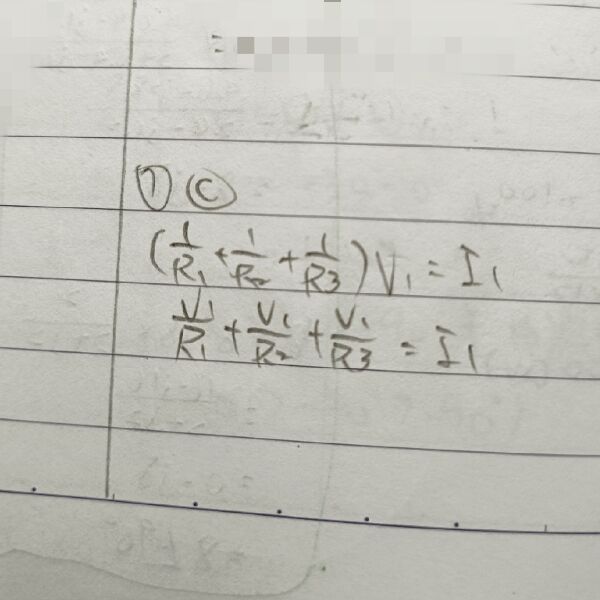 ① ⓒ
(1/R₁ + 1/R₂ + 1/R3)V₁ = I₁
V₁/R₁ + V₁/R₂ + V₁/R3 = I₁